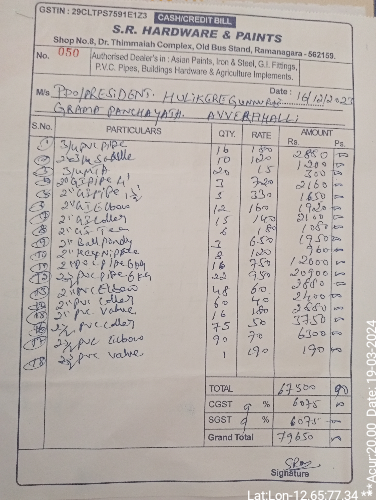 GSTIN : 29CLTPS7591E1Z3 CASH/CREDIT BILL
S.R. HARDWARE & PAINTS
Shop No.8, Dr. Thimmaiah Complex, Old Bus Stand, Ramanagara - 562159.
No. 050 Authorised Dealer's in : Asian Paints, Iron & Steel, G.I. Fittings,
P.V.C. Pipes, Buildings Hardware & Agriculture Implements.
Date : 16/12/2023
M/s PDO/PRESIDENT. HULIKERE GUNNUR
GRAMA PANCHAYATH. AVVERAHALLI
S.No. PARTICULARS QTY. RATE AMOUNT
Rs. Ps.
3/4 PVC PIPE 16 180 2880
10 120 1200
20 15 300
3 720 2160
330 1650
2" GI Elbow 12 160 1920
2" GI Coller 15 140 2100
2" GI Tee 6 180 1080
3 650 1950
8 120 960
16 750 12000
22 950 20900
2" PVC Elbow 48 60 2880
2" PVC Coller 60 40 2400
2" PVC Value 16 180
2 1/2 PVC Coller 75 50 3750
2 1/2 PVC Elbow 90 70 6300
2 1/2 PVC Value 1 190 190
TOTAL 67500
CGST 9 % 6075
SGST 9 % 6075
Grand Total 79650
Signature
Lat:Lon-12.65:77.34 **Acur:20.00 Date:19-03-2024